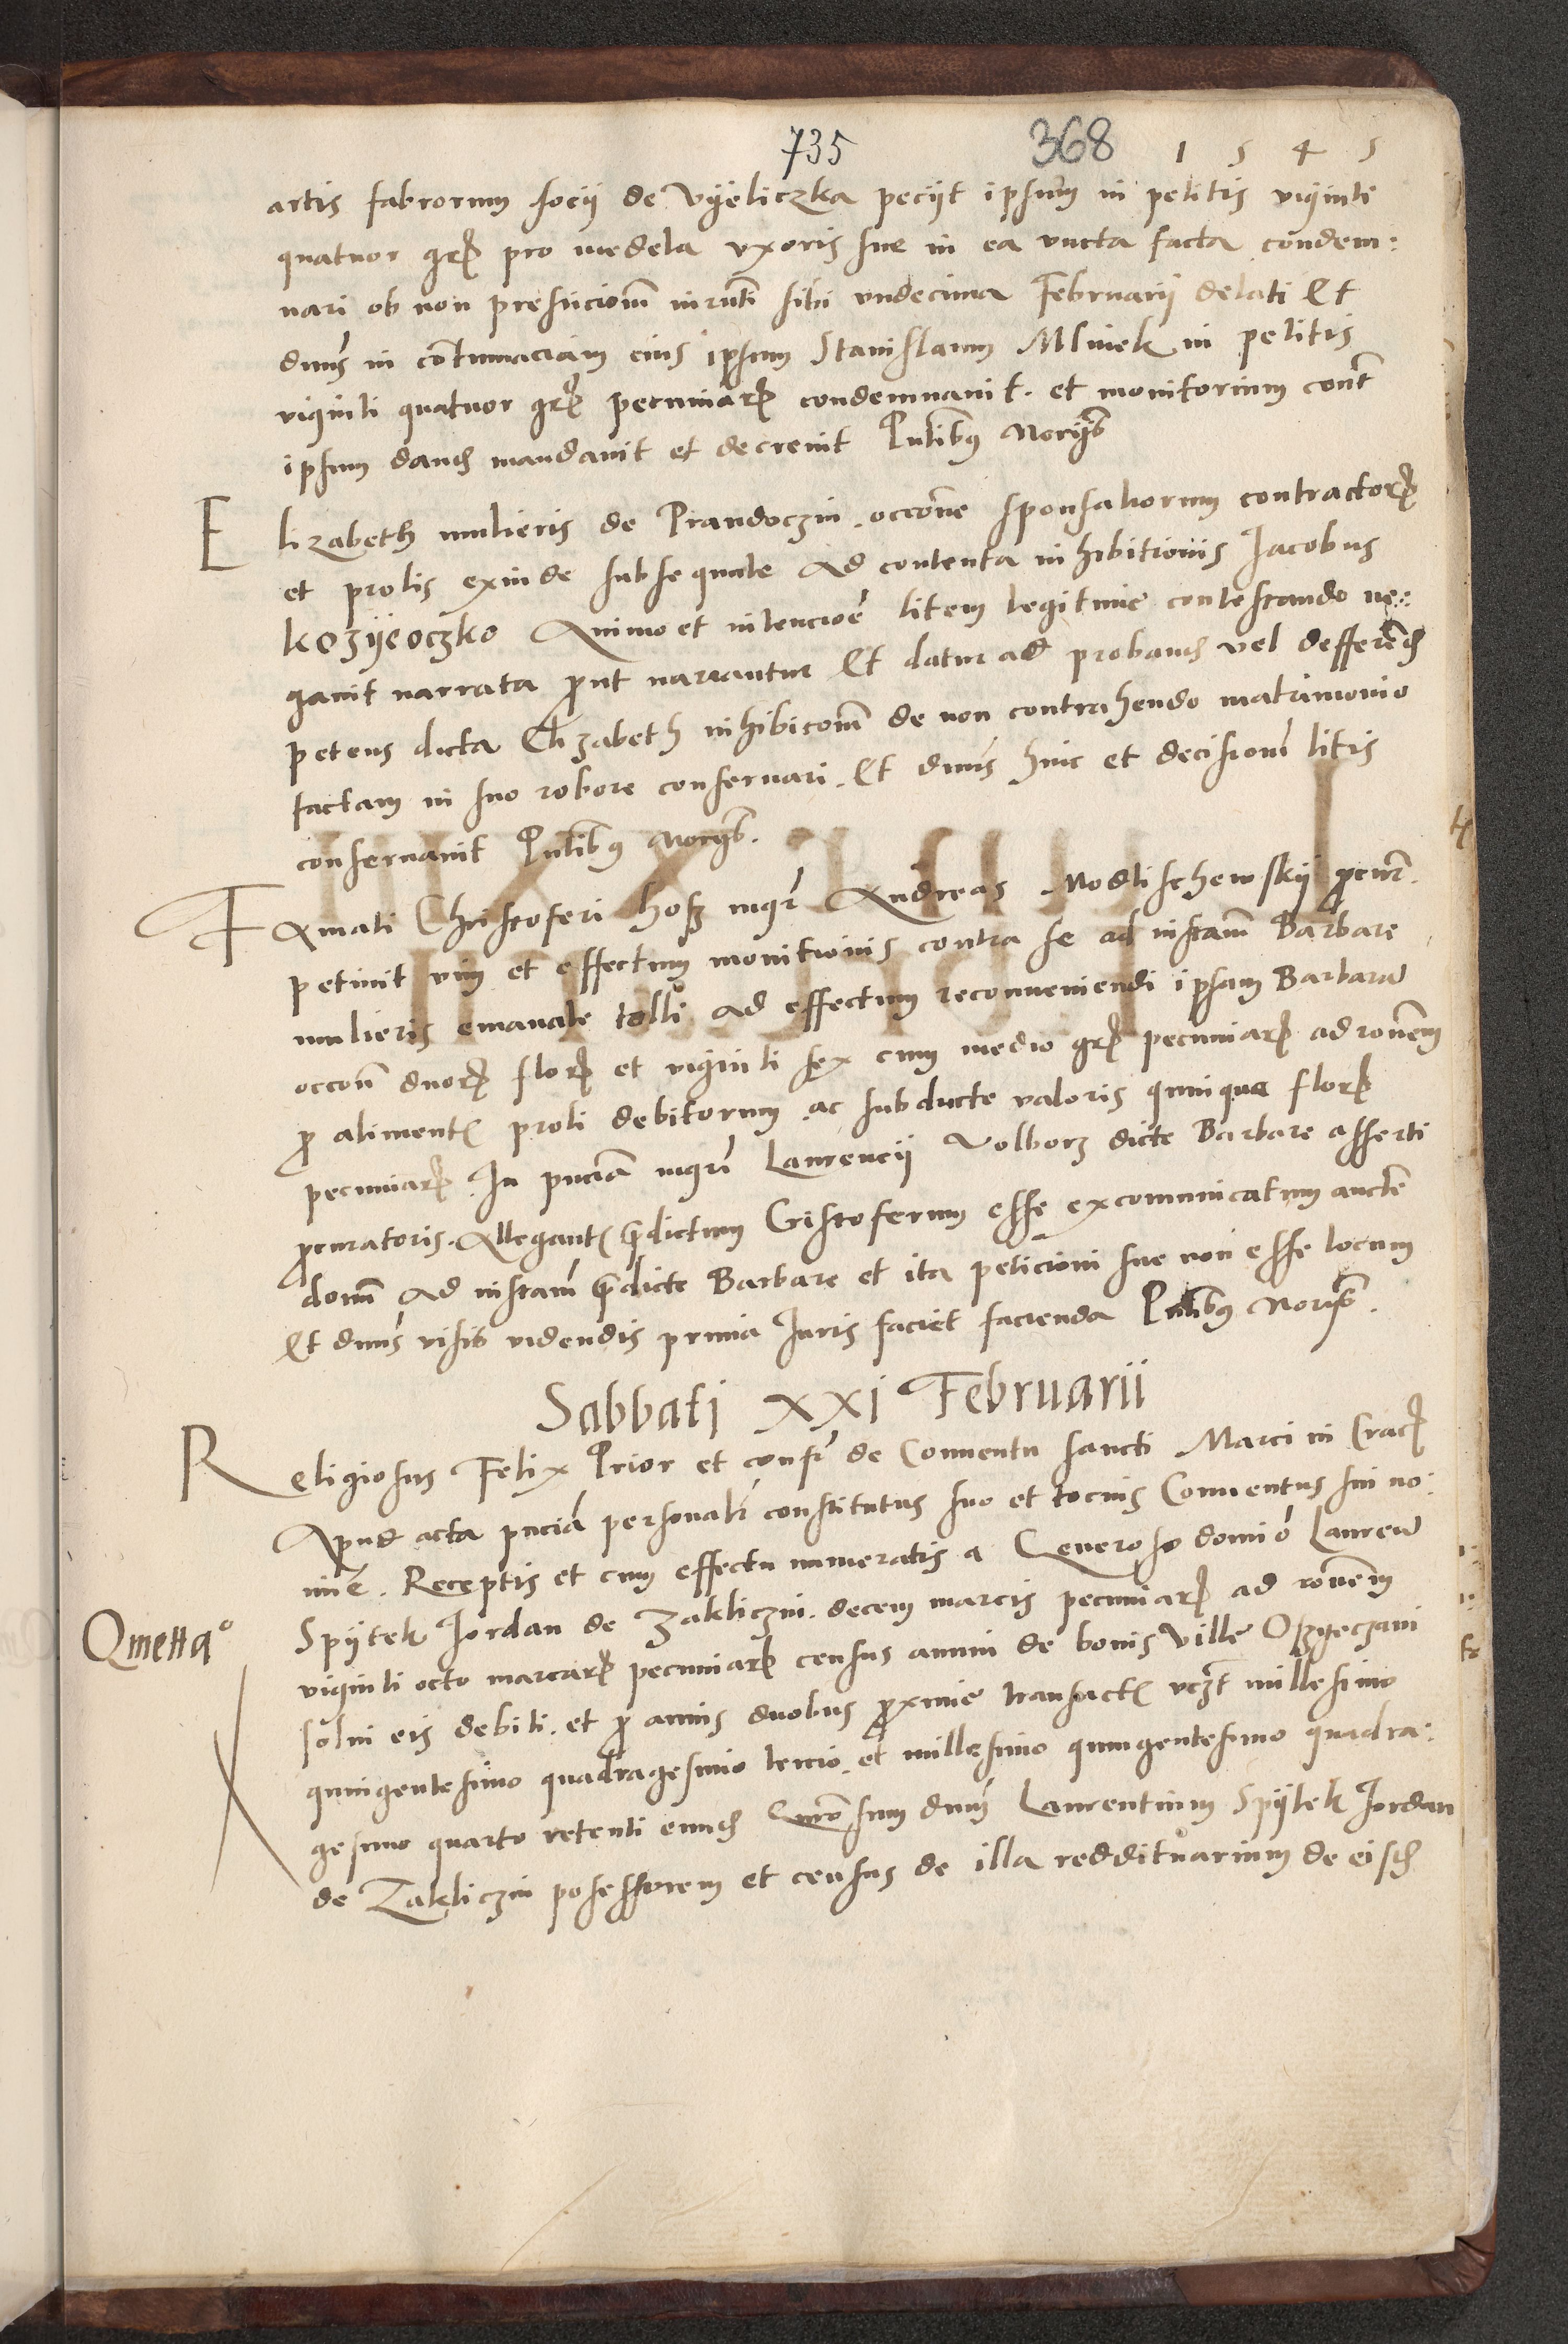 735 368 1 5 4 5
artis fabrorum socij de Vyeliczka peciit ipsum in petitis viginti
quatuor gr pro medela vxoris sue in ea vncta facta condem:
nari ob non presticiom iurnti sibi vndecima Februarii delati Et
dnus in contumaciam eius ipsum Stanislaum Mlinek in petitis
viginti quatuor gr pecuniar condemnauit. et monitorium cont
ipsum dand mandauit et decreuit Pntibus Norijs
Elizabeth mulieris de Prandoczin. occone sponsaliorum contractor
et prolis exinde subsequute Ad contenta inhibitionis Jacobus
Kozyeoczko Animo et intencioe litem legitime contestando ne:
gauit narrata prout narrantur Et datur ad proband vel defferend
petens dicta Elizabeth inhibicom de non contrahendo matrimonio
factam in suo robore conseruari. Et dnus huic et decisionem litis
conseruauit Pntibus Norijs.
Famati Christoferi hosz mgr Andreas Modlischewskij procur.
petiuit vim et effectum monitionis contra se ad instam Barbare
mulieris emanate tolli Ad effectum reconueniendi ipsam Barbaram
occon duor flor et viginti sex cum medio gr pecuniar ad ronem
pro aliment proli debitorum ac subducte valoris quinque flor
pecuniar. In pnciam mgri Laurencij Volborz dicte Barbare asserti
procuratoris. Allegant predictum Cristoferum esse excomunicatum aucte
domi Ad instam predicte Barbare et ita peticioni sue non esse locum
Et dnus visis videndis premia Juris faciet facienda Pntibus Norijs.
Sabbati xxi Februarii
Religiosus Felix Prior et confr de Conuentu sancti Marci in Crac
Apud acta pncia personalr constitutus suo et tocius Conuentus sui no:
mine. Receptis et cum effectu numeratis a Generoso domino Lauren
Qmetta° Spytek Jordan de Zakliczin. decem marcis pecuniar ad ronem
viginti octo marcar pecuniar census annui de bonis ville
solui eis debiti. et pro annis duobus proxime transact vczt millesimo
quingentesimo quadragesimo tercio. et millesimo quingentesimo quadra:
gesimo quarto retenti eund Gnrosum dnum Laurentium Spytek Jordan
de Zakliczin possessorem et census de illa reddituarium de eisd